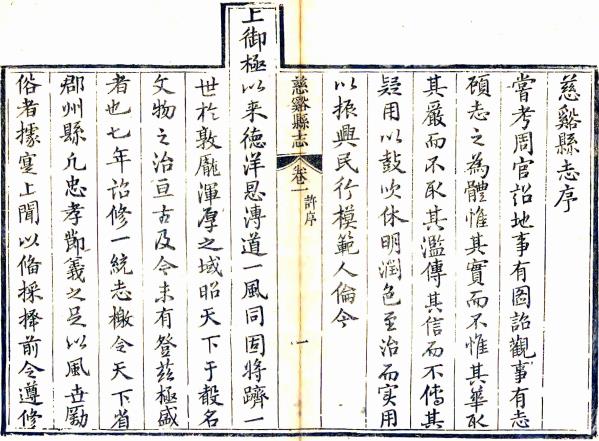 慈谿縣志序
嘗考周官詔地事有圖詔觀事有志
顧志之為體惟其實而不惟其華取
其嚴而不取其濫傳其信而不傳其
疑用以鼓吹休明潤色至治而實用
以振興民行模範人倫今
慈谿縣志 卷一 許序 一
上御極以来德洋恩溥道一風同固將躋一
世於敦龐渾厚之域昭天下于聲名
文物之治亘古及今未有登茲極盛
者也七年詔修一統志檄令天下省
郡州縣凡忠孝節義之足以風世勵
俗者據寔上聞以偹採擇前令遵修